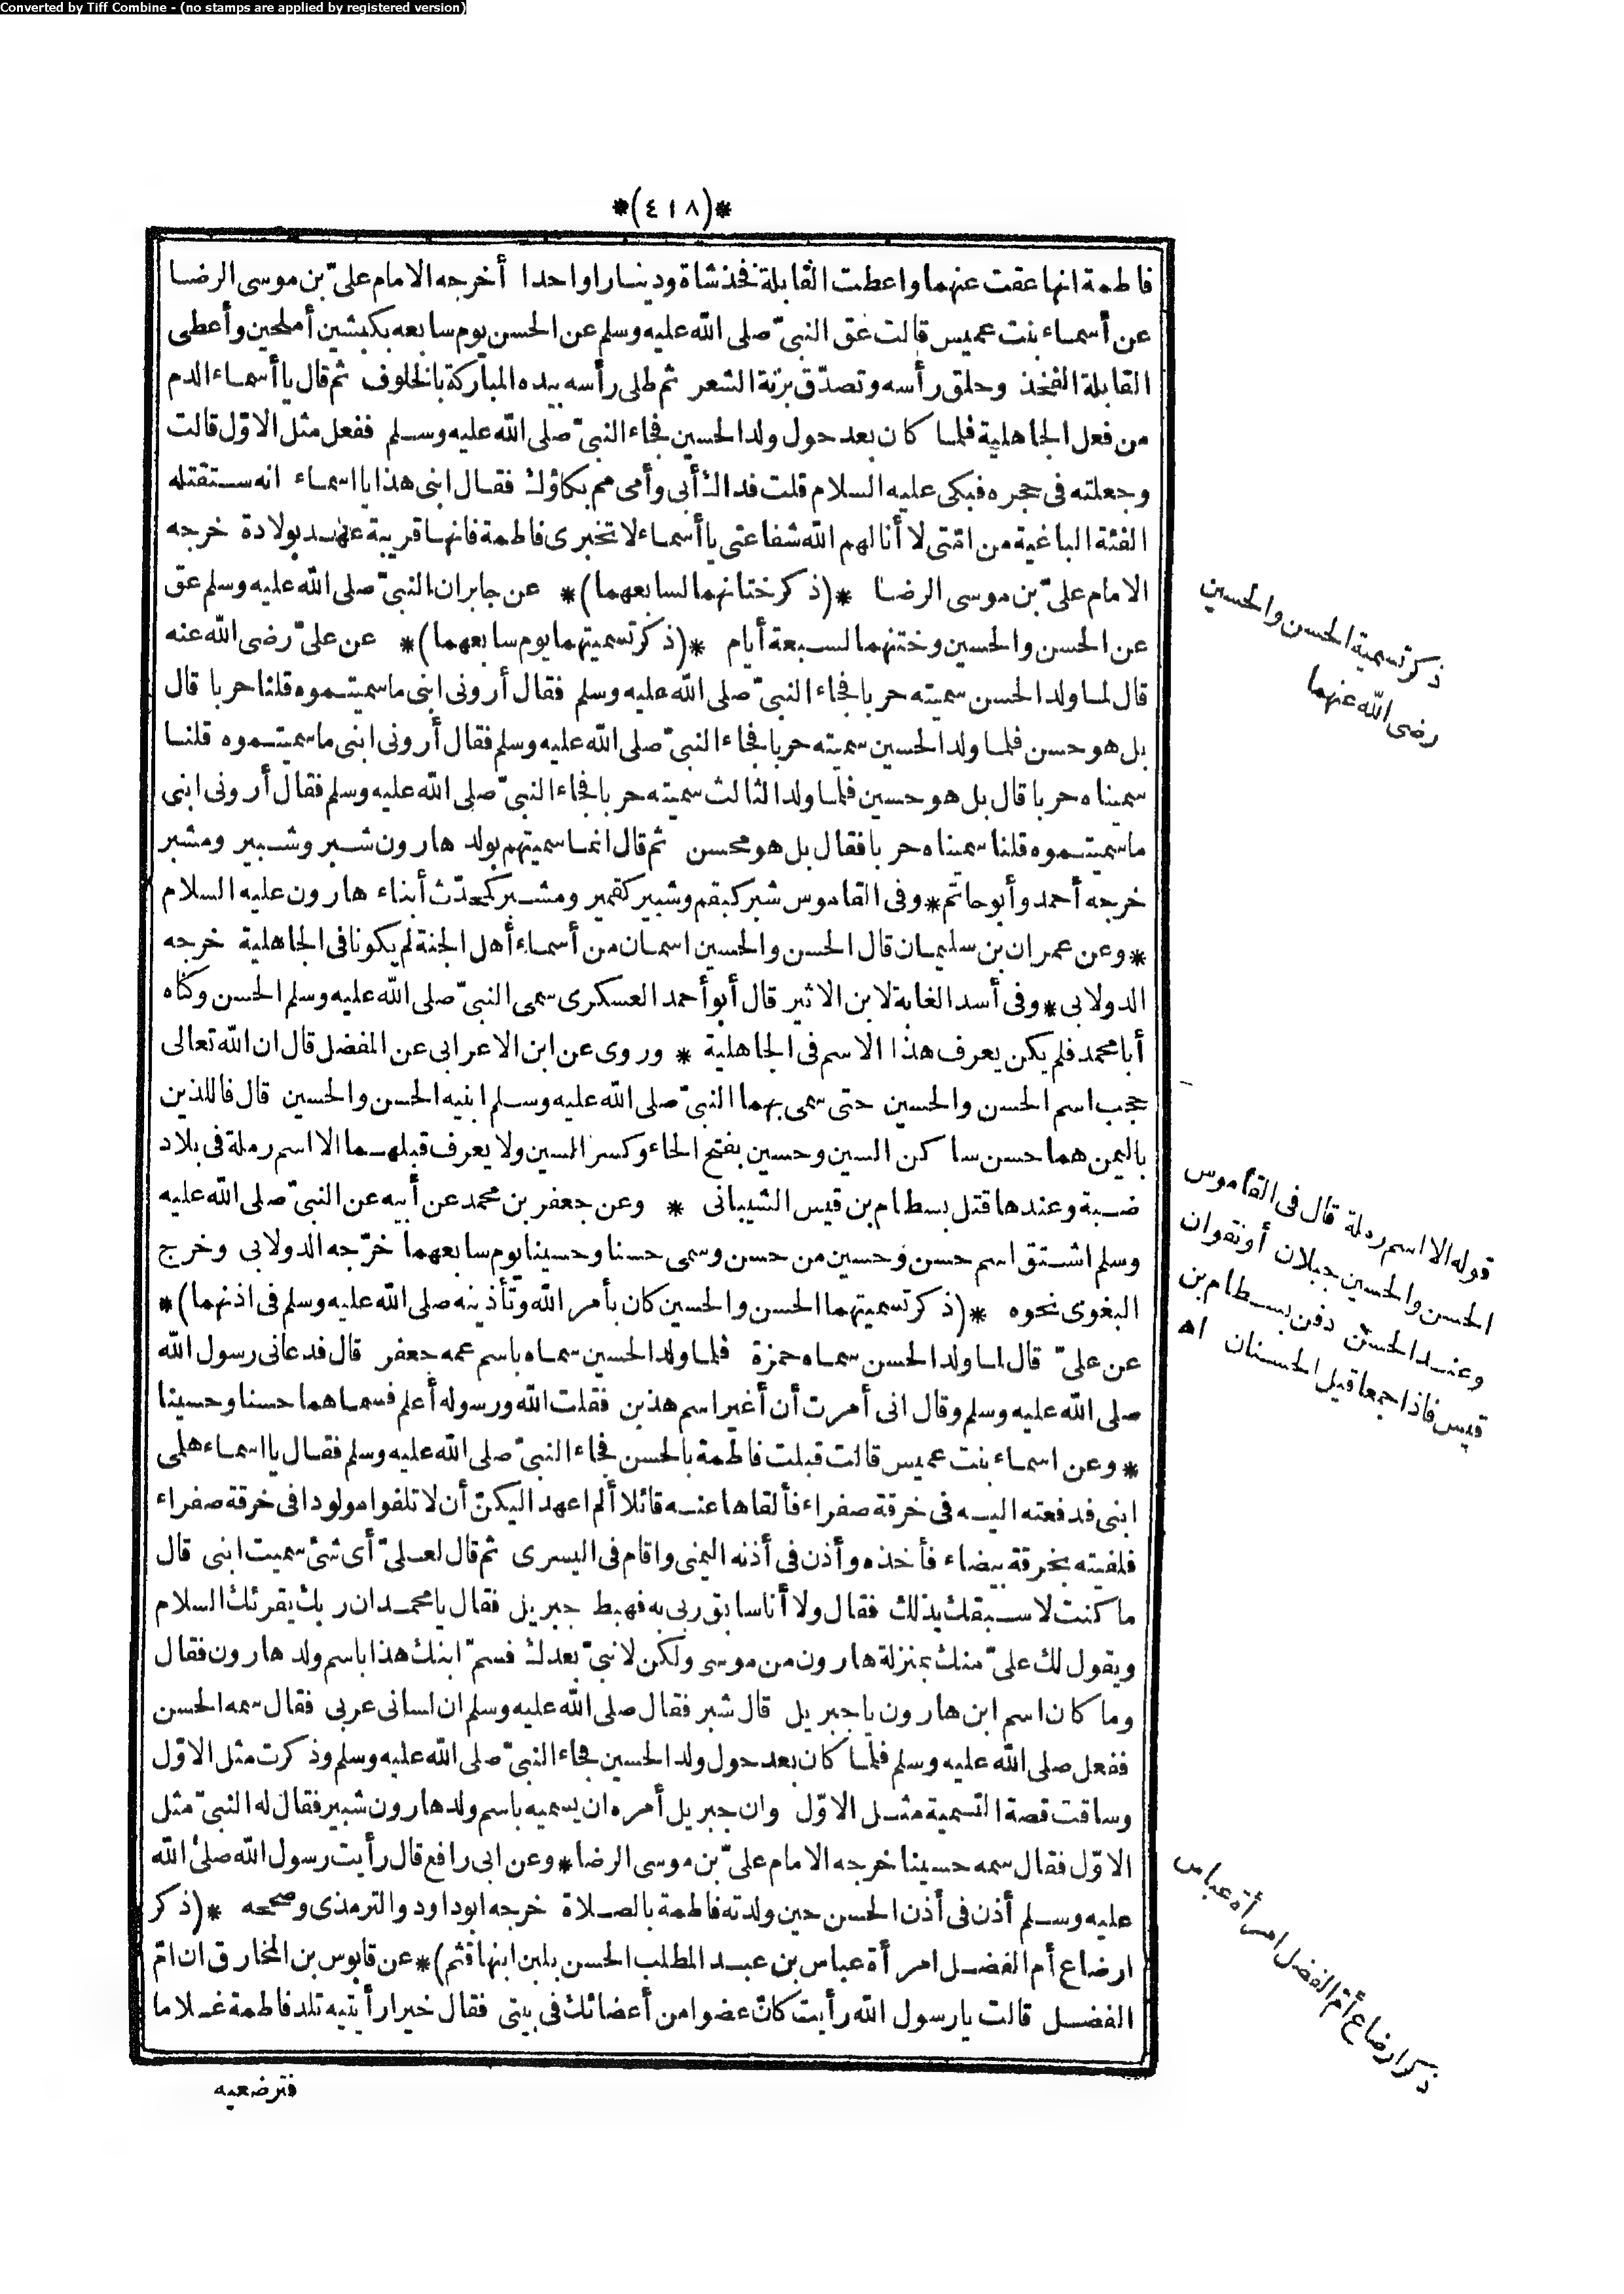 Converted by Tiff Combine - (no stamps are applied by registered version)
*(٤١٨)*
فاطمة انها عقت عنهما واعطت القابلة فخذ شاة ودينارا واحدا أخرجه الامام علىّ بن موسى الرضا
عن أسماء بنت عميس قالت عق النبىّ صلى الله عليه وسلم عن الحسن يوم سابعه بكبشين أملحين وأعطى
القابلة الفخذ وحلق رأسه وتصدّق بزنة الشعر ثم طلى رأسه بيده المباركة بالخلوف ثم قال يا أسماء الدم
من فعل الجاهلية فلما كان بعد حول ولد الحسين فجاء النبىّ صلى الله عليه وسلم ففعل مثل الاوّل قالت
وجعلته فى حجره فبكى عليه السلام قلت فداك أبى وأمى مم بكاؤك فقال ابنى هذا يا اسماء انه ستقتله
الفئة الباغية من امّتى لا أنالهم الله شفاعتى يا أسماء لا تخبرى فاطمة فانها قريبة عهد بولادة خرجه
الامام علىّ بن موسى الرضا *(ذكر ختانهما لسابعهما)* عن جابر ان النبىّ صلى الله عليه وسلم عق
عن الحسن والحسين وختنهما لسبعة أيام *(ذكر تسميتهما يوم سابعهما)* عن علىّ رضى الله عنه
قال لما ولد الحسن سميته حربا فجاء النبىّ صلى الله عليه وسلم فقال أرونى ابنى ما سميتموه قلنا حربا قال
بل هو حسن فلما ولد الحسين سميته حربا فجاء النبىّ صلى الله عليه وسلم فقال أرونى ابنى ما سميتموه قلنا
سميناه حربا قال بل هو حسين فلما ولد الثالث سميته حربا فجاء النبىّ صلى الله عليه وسلم فقال أرونى ابنى
ما سميتموه قلنا سميناه حربا فقال بل هو محسن ثم قال انما سميتهم بولد هارون شبر وشبير ومشبر
خرجه أحمد وأبو حاتم * وفى القاموس شبر كبقم وشبير كقمير ومشبر كمحدّث أبناء هارون عليه السلام
* وعن عمران بن سليمان قال الحسن والحسين اسمان من أسماء أهل الجنة لم يكونا فى الجاهلية خرجه
الدولابى * وفى أسد الغابة لابن الاثير قال أبو أحمد العسكرى سمى النبىّ صلى الله عليه وسلم الحسن وكناه
أبا محمد فلم يكن يعرف هذا الاسم فى الجاهلية * وروى عن ابن الاعرابى عن المفضل قال ان الله تعالى
حجب اسم الحسن والحسين حتى سمى بهما النبىّ صلى الله عليه وسلم ابنيه الحسن والحسين قال فاللذين
باليمن هما حسن ساكن السين وحسين بفتح الحاء وكسر السين ولا يعرف قبلهما الا اسم رملة فى بلاد
ضبة وعندها قتل بسطام بن قيس الشيبانى * وعن جعفر بن محمد عن أبيه عن النبىّ صلى الله عليه
وسلم اشتق اسم حسن وحسين من حسن وسمى حسنا وحسينا يوم سابعهما خرّجه الدولابى وخرج
البغوى نحوه *(ذكر تسميتهما الحسن والحسين كان بأمر الله وتأذينه صلى الله عليه وسلم فى اذنهما)*
عن علىّ قال لما ولد الحسن سماه حمزة فلما ولد الحسين سماه باسم عمه جعفر قال فدعانى رسول الله
صلى الله عليه وسلم وقال انى أمرت أن أغير اسم هذين فقلت الله ورسوله أعلم فسماهما حسنا وحسينا
* وعن اسماء بنت عميس قالت قبلت فاطمة بالحسن فجاء النبىّ صلى الله عليه وسلم فقال يا اسماء هلمى
ابنى فدفعته اليه فى خرقة صفراء فألقاها عنه قائلا ألم اعهد اليكنّ أن لا تلفوا مولودا فى خرقة صفراء
فلفيته بخرقة بيضاء فأخذه وأذن فى أذنه اليمنى واقام فى اليسرى ثم قال لعلىّ أى شئ سميت ابنى قال
ما كنت لاسبقك بذلك فقال ولا أنا سابق ربى به فهبط جبريل فقال يا محمد ان ربك يقرئك السلام
ويقول لك علىّ منك بمنزلة هارون من موسى ولكن لا نبىّ بعدك فسمّ ابنك هذا باسم ولد هارون فقال
وما كان اسم ابن هارون يا جبريل قال شبر فقال صلى الله عليه وسلم ان لسانى عربى فقال سمه الحسن
ففعل صلى الله عليه وسلم فلما كان بعد حول ولد الحسين فجاء النبىّ صلى الله عليه وسلم وذكرت مثل الاوّل
وساقت قصة التسمية مثل الاوّل وان جبريل أمره ان يسميه باسم ولد هارون شبير فقال له النبىّ مثل
الاوّل فقال سمه حسينا خرجه الامام علىّ بن موسى الرضا * وعن ابى رافع قال رأيت رسول الله صلى الله
عليه وسلم أذن فى أذن الحسن حين ولدته فاطمة بالصلاة خرجه ابو داود والترمذى وصححه *(ذكر
ارضاع أم الفضل امرأة عباس بن عبد المطلب الحسن بلبن ابنها قثم)* عن قابوس بن المخارق ان امّ
الفضل قالت يا رسول الله رأيت كانّ عضوا من أعضائك فى بيتى فقال خيرا رأيتيه تلد فاطمة غلاما
فترضعيه
ذكر تسمية الحسن والحسين
رضى الله عنهما
قوله الا اسم رملة قال فى القاموس
الحسن والحسين جبلان أو نقوان
وعند الحسن دفن بسطام بن
قيس فاذا جمعا قيل الحسنان اه
ذكر ارضاع أمّ الفضل امرأة عباس